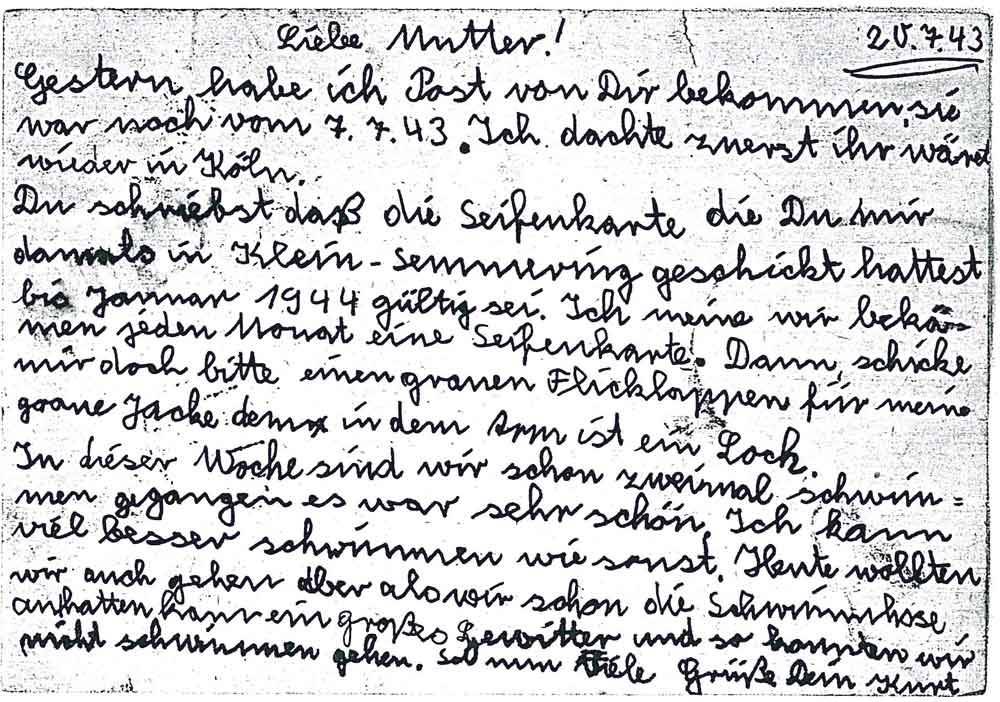 Liebe Mutter!
20.7.43
Gestern habe ich Post von Dir bekommen, sie
war noch vom 7.7.43. Ich dachte zuerst ihr wäret
wieder in Köln.
Du schriebst daß die Seifenkarte die Du mir
damals in Klein-Semmering geschickt hattest
bis Januar 1944 gültig sei. Ich meine wir bekä-
men jeden Monat eine Seifenkarte. Dann schicke
mir doch bitte einen grauen Flicklappen für meine
graue Jacke denn in dem Arm ist ein Loch.
In dieser Woche sind wir schon zweimal schwim=
men gegangen es war sehr schön. Ich kann
viel besser schwimmen wie sonst. Heute wollten
wir auch gehen aber als wir schon die Schwimmhose
anhatten kam ein großes Gewitter und so konnten wir
nicht schwimmen gehen. So nun Viele Grüße Dein Kurt